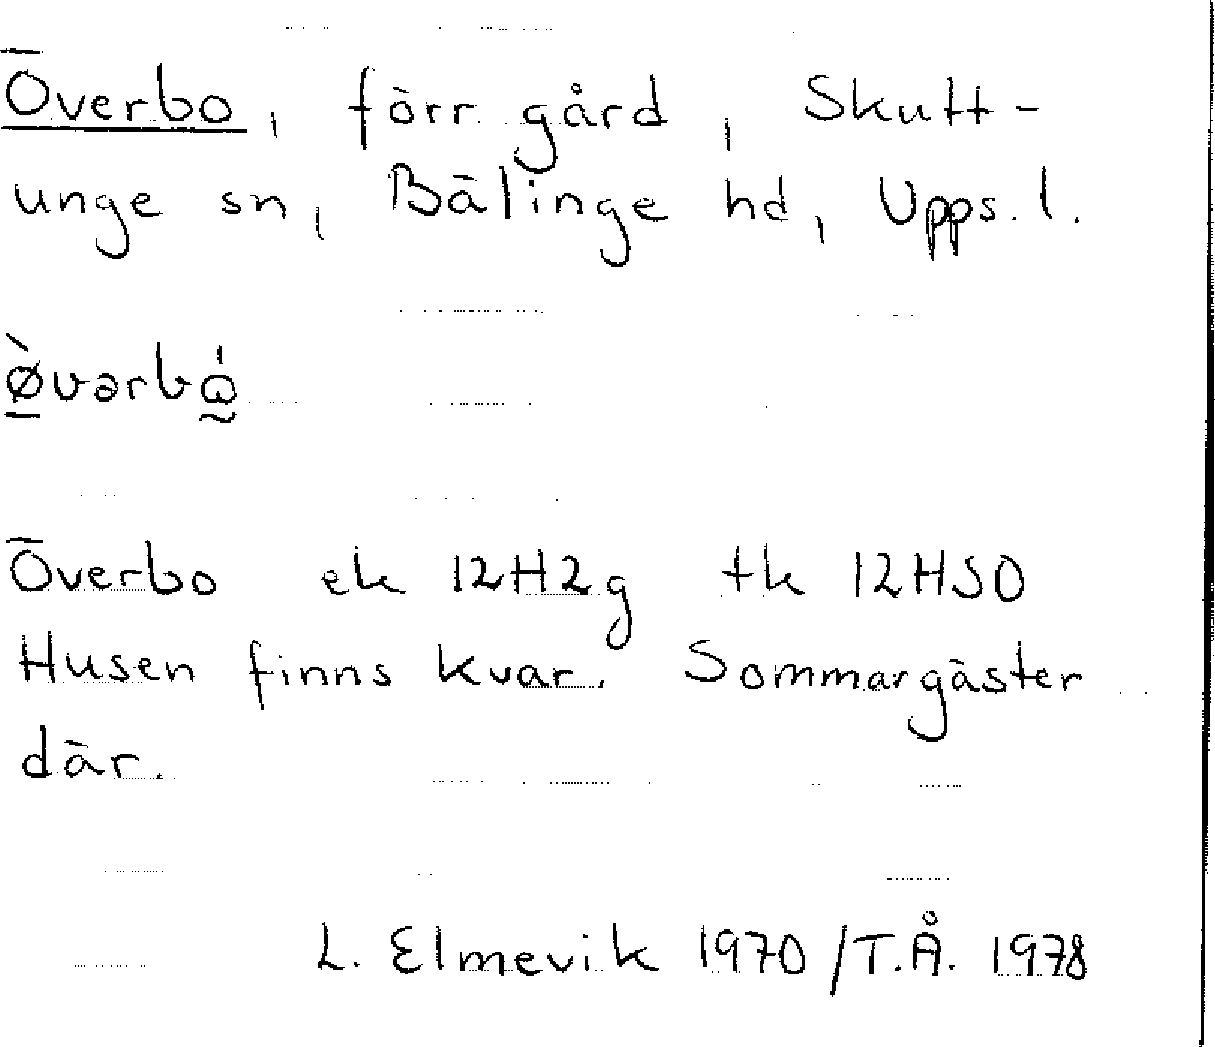 Överbo, förr gård, Skutt-
unge sn, Bälinge hd, Upps. l.
ø̀vərbɷ́
Överbo ek 12H2g tk 12HSO
Husen finns kvar. Sommargäster
där.
L. Elmevik 1970 /T.Å. 1978